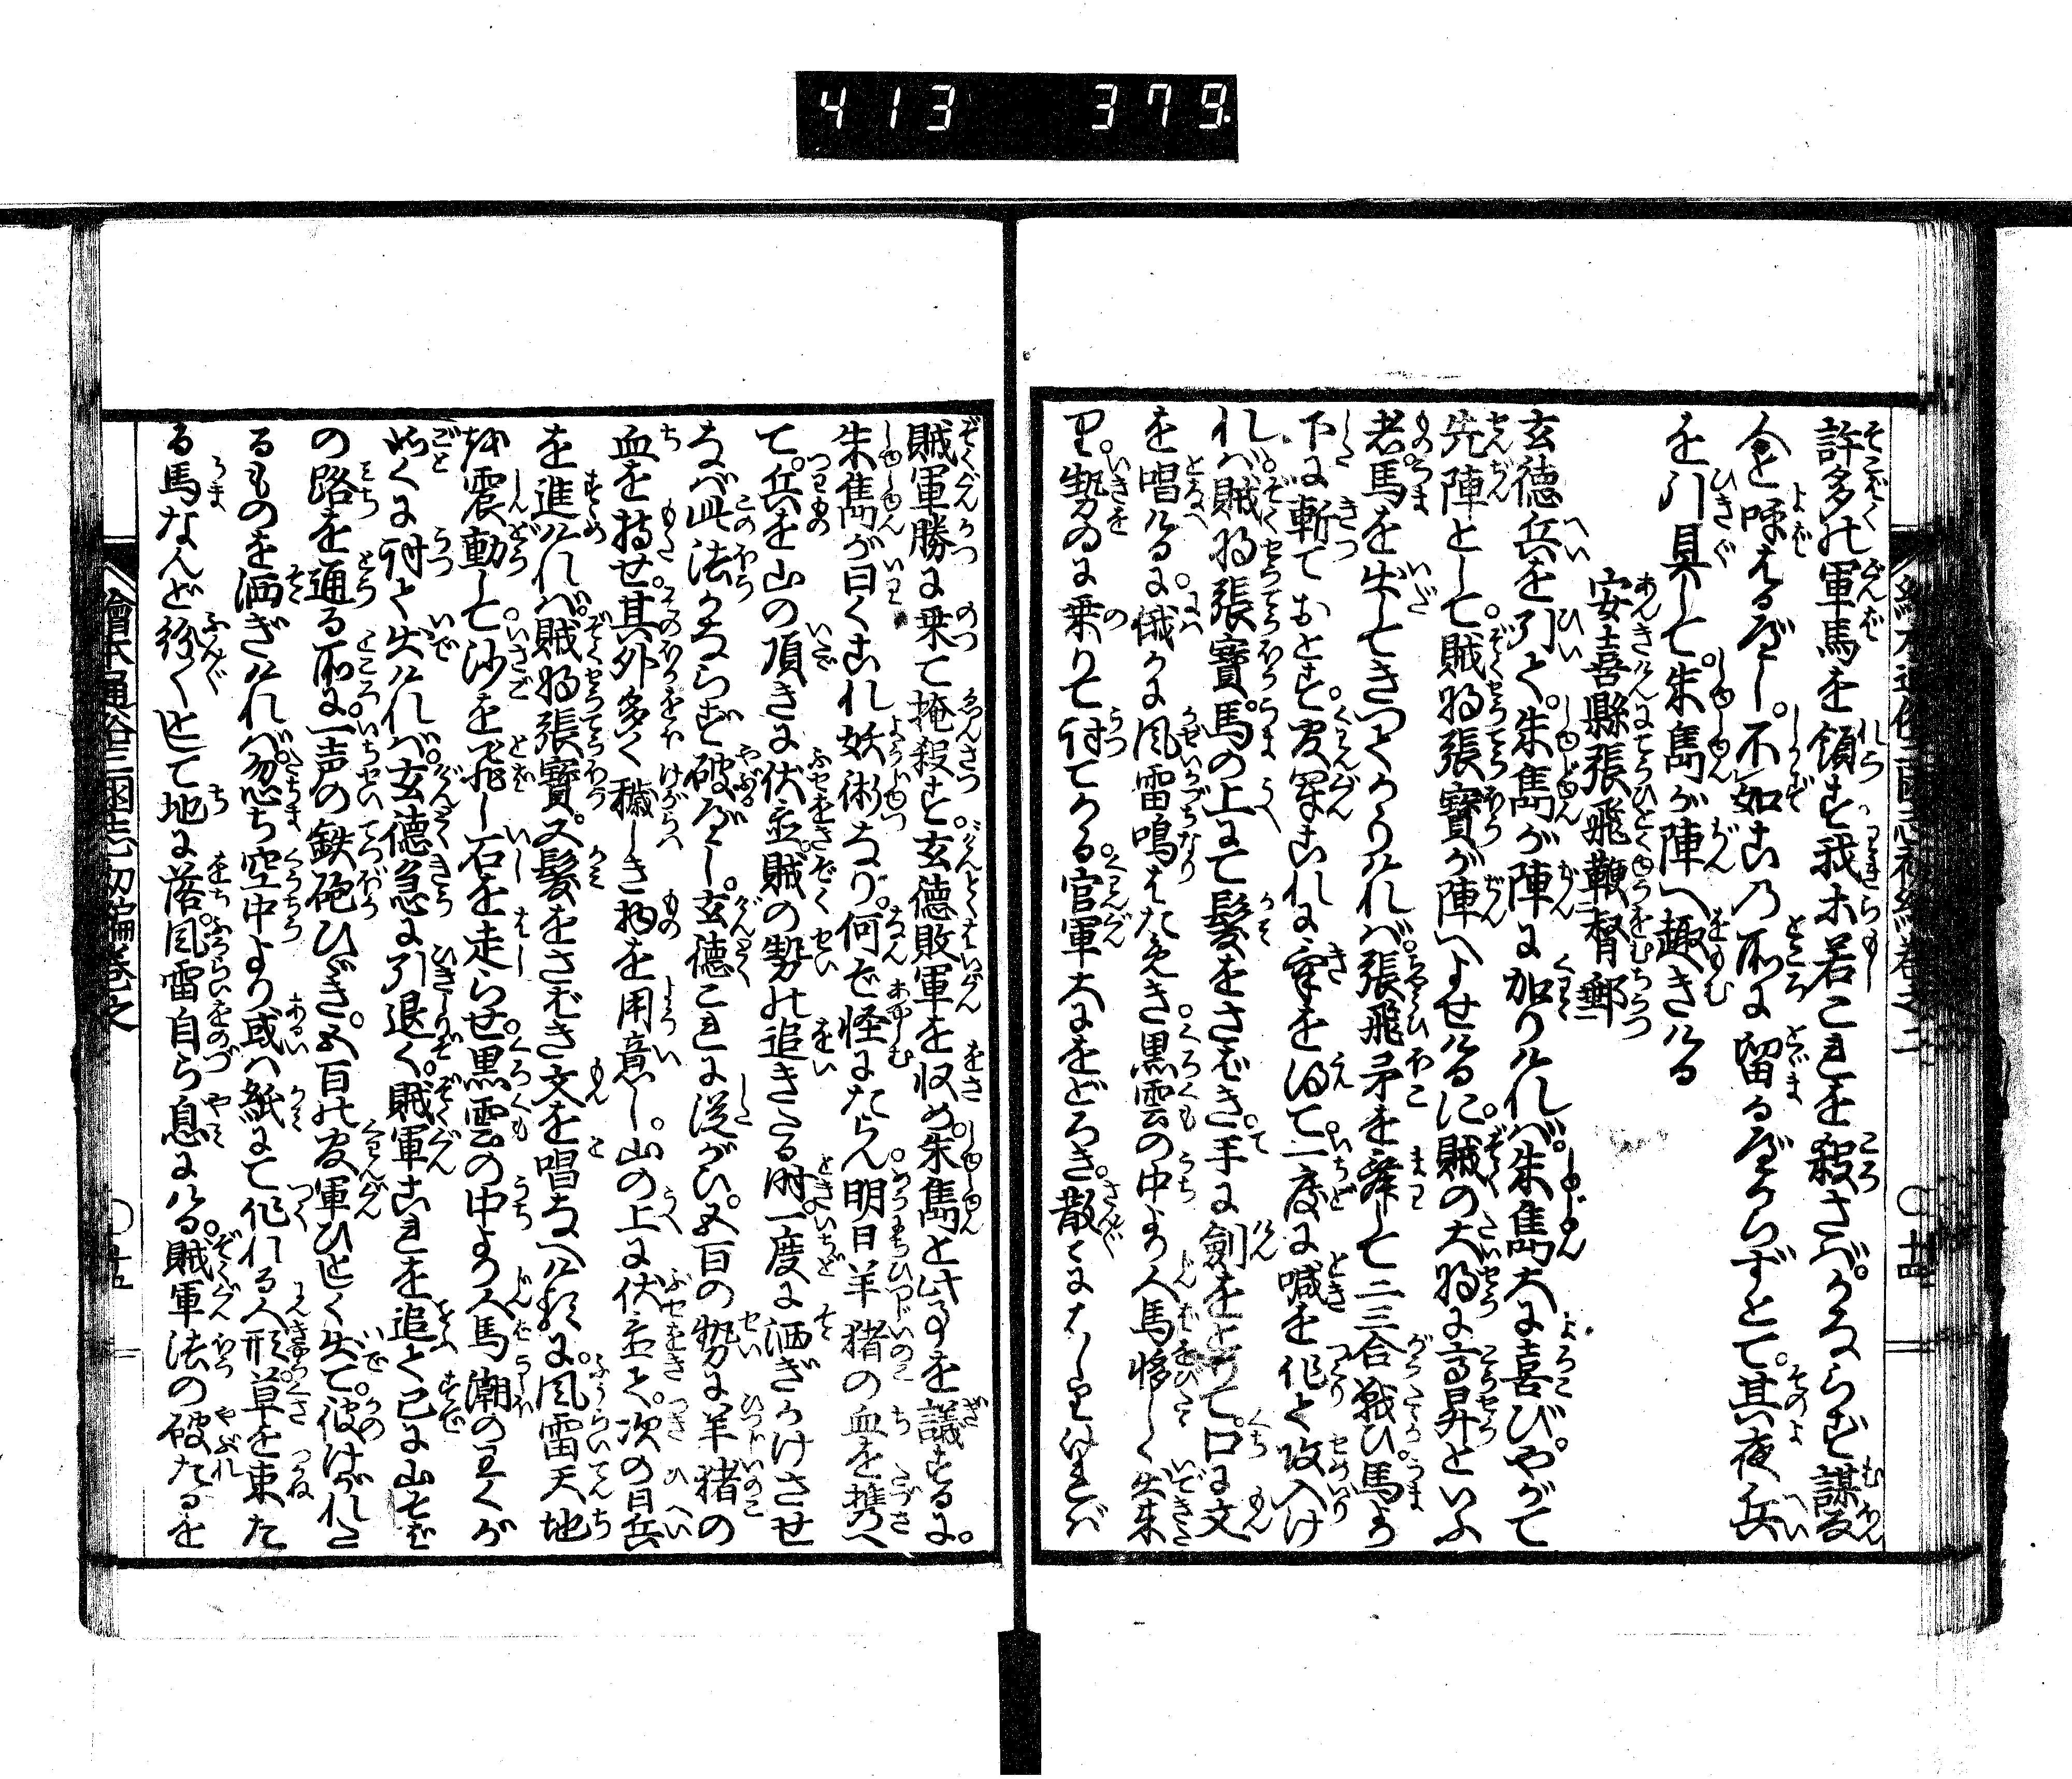 413 379
許多の軍馬を領す我等若これを殺さバかならず謀反
人と呼るべし。不如この所に留るべからずとて。其夜兵
を引具して。朱雋が陣へ趣きける
安喜縣張飛鞭督郵
玄徳兵を引て。朱雋が陣に加りけれバ。朱雋大に喜び。やがて
先陣として。賊将張寶が陣へよせけるに。賊の大将に高昇といふ
者。馬を出してきつてかゝりけれバ。張飛矛を舞して二三合戦ひ。馬より
下に斬ておとす。官軍これに氣を得て。一度に喊を作て攻入け
れバ。賊将張寶。馬の上にて髪をさばき。手に劍をとりて。口に文
を唱ける。に。俄かに風雷鳴はためき。黒雲の中より人馬夥しく出来
り。勢ひに乗りて討てかゝる。官軍大にをどろき。散〻にはしりければ
賊軍勝に乗て掩殺す。玄徳敗軍を収め。朱雋と此事を議するに。
朱雋が曰くこれ妖術なり。何ぞ怪にたらん。明日羊猪の血を携へ
て。兵を山の頂きに伏置。賊の勢の追きたる時。一度に洒ぎかけさせ
なバ此法かならず破べし。玄徳これに従がひ。五百の勢に羊猪の
血を持せ。其外多く穢しき物を用意し。山の上に伏置て。次の日兵
を進けれバ。賊将張寶。又髪をさばき文を唱なへけるに。風雷天地
を震動して。沙を飛し石を走らせ。黒雲の中より人馬潮の わくが
如くに討て出けれバ。玄徳急に引退く。賊軍これを追て已に山そば
の路を通る所に。一声の鉄砲ひゞき。五百の官軍ひとしく出て。彼けがれた
るものを洒ぎけれバ。忽ち空中より或ハ紙にて作れる人形。草を束た
る馬なんど。紛〻として地に落。風雷自ら息にける。賊軍法の破たるを
繪本通俗三國志初編巻之 〇十五